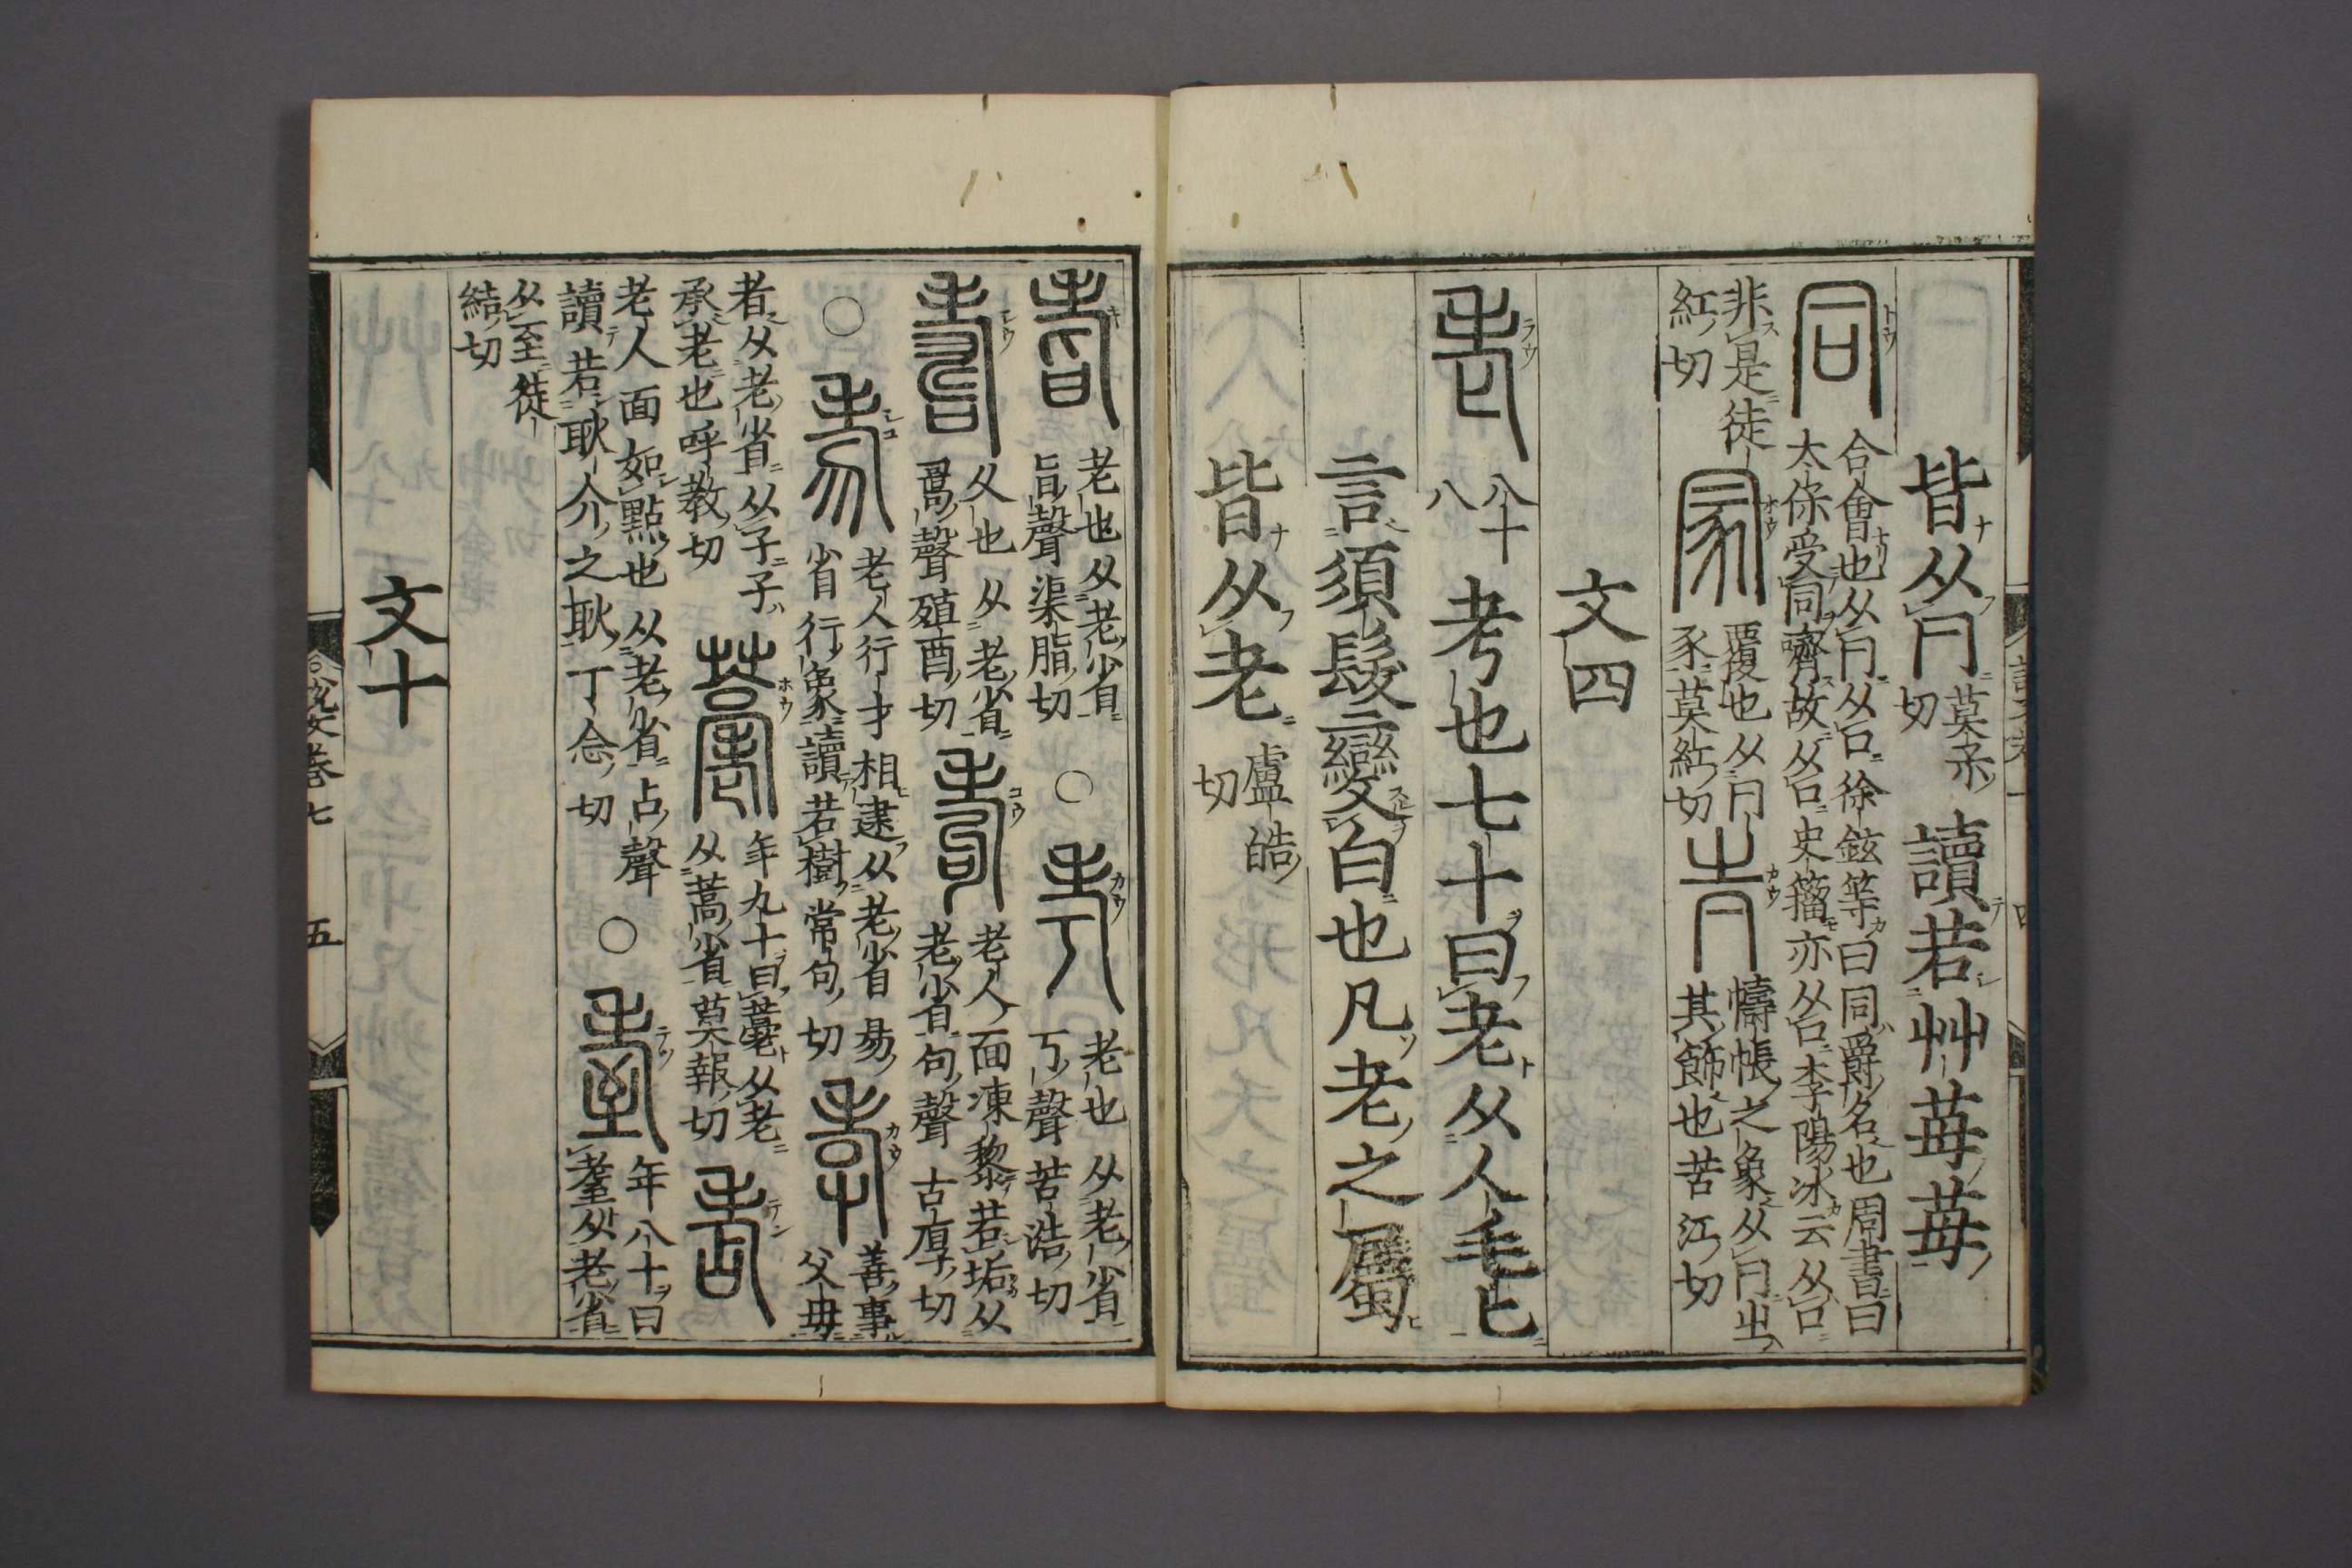 皆从冃莫柔切讀若艸苺苺
同合會也从冃从口徐鉉等曰同爵名也周書曰
太保受同嚌故从口史籀亦从口李陽冰云从口
非是徒
紅切
冡覆也从冃
豕莫紅切
幬帳之象从冃㞢
其飾也苦江切
文四
老八十八考也七十曰老从人毛匕
言須髮變白也凡老之屬
皆从老盧皓切
耆老也从老省
旨聲渠脂切
○
考老也从老省
丂聲苦浩切
壽久也从老省
𠷎聲殖酉切
耇老人面凍黎若垢从
老省句聲古厚切
○
老人行才相逮从老省易
省行象讀若樹常句切
孝善事父毋
者从老省从子子
承老也呼教切
年九十曰薹从老
从蒿省莫報切
老人面如點也从老省占聲
讀若耿介之耿丁念切
○
年八十曰
耋从老省
从至徒
結切
文十
說文卷七
五